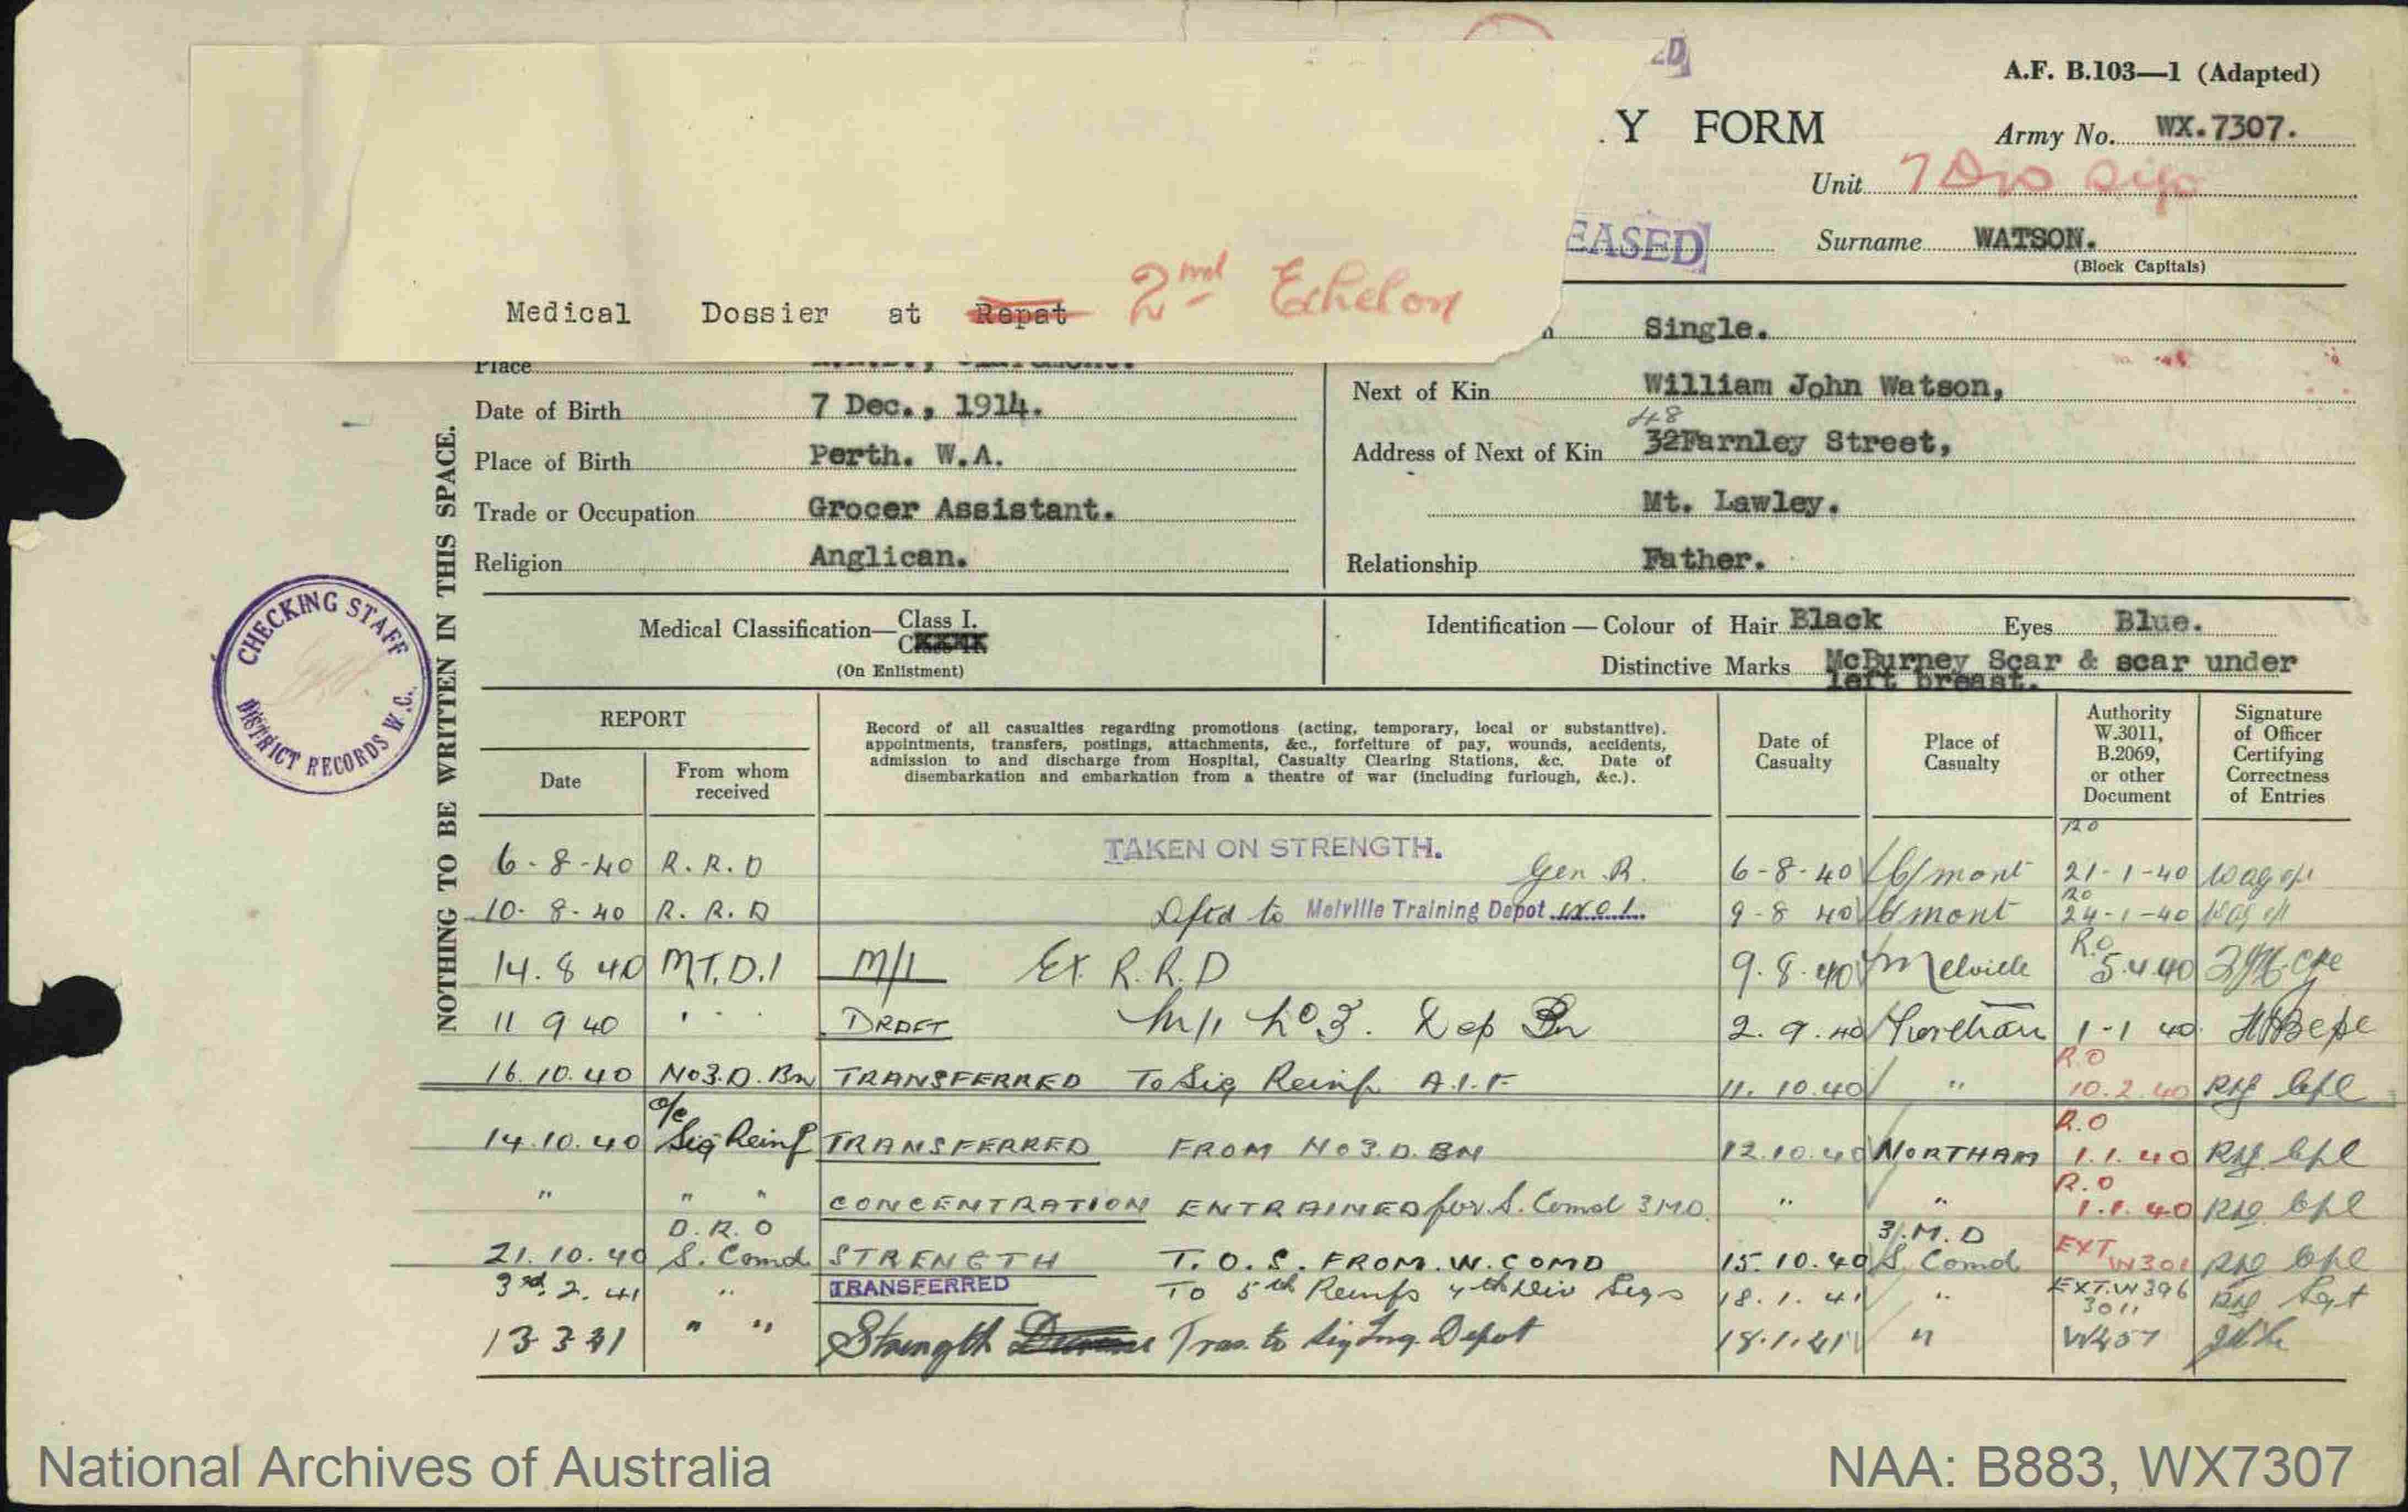 A.F. B.103—1 (Adapted)
Y FORM
Army No. WX.7307.
Unit 7 Div Sigs
EASED
Surname WATSON.
(Block Capitals)
Medical Dossier at Repat 2nd Echelon
Single.
Place
Next of Kin William John Watson,
Date of Birth 7 Dec., 1914.
48
Address of Next of Kin 32 Farnley Street,
Place of Birth Perth. W.A.
Mt. Lawley.
Trade or Occupation Grocer Assistant.
Religion Anglican.
Relationship Father.
NOTHING TO BE WRITTEN IN THIS SPACE.
CHECKING STAFF
DISTRICT RECORDS W.C.
Medical Classification— Class I.
(On Enlistment)
Identification — Colour of Hair Black Eyes Blue.
Distinctive Marks McBurney Scar & scar under
left breast.
REPORT
Date
From whom received
Record of all casualties regarding promotions (acting, temporary, local or substantive).
appointments, transfers, postings, attachments, &c., forfeiture of pay, wounds, accidents,
admission to and discharge from Hospital, Casualty Clearing Stations, &c. Date of
disembarkation and embarkation from a theatre of war (including furlough, &c.).
Date of Casualty
Place of Casualty
Authority W.3011, B.2069, or other Document
Signature of Officer Certifying Correctness of Entries
6-8-40 R.R.D TAKEN ON STRENGTH. Gen. R. 6-8-40 C/mont RO 21-1-40
10-8-40 R.R.D to Melville Training Depot No 1. 9-8 40 C/mont RO 24-1-40
14.8 40 M.T.D.1 M/I Ex R.R.D 9.8.40 Melville R.O 5.4.40
11 9 40 " " DRAFT No 3. Dep Bn 2.9.40 Northam 1-1 40
16.10.40 No3.D.Bn TRANSFERRED To Sig Reinf A.I.F 11.10.40 " R.O 10.2.40 Cpl
14.10.40 o/c Sig Reinf TRANSFERRED FROM No3.D.BN 12.10.40 NORTHAM R.O 1.1.40 Cpl
" " " CONCENTRATION ENTRAINED for S. Comd 3 M.D. " " R.O 1.1.40 Cpl
21.10.40 D.R.O S. Comd STRENGTH T.O.S. FROM W. COMD 15.10.40 3/M.D S. Comd EXT W301 Cpl
3rd. 2. 41 " TRANSFERRED To 5th Reinfs 7th Div Sigs 18.1.41 " EXT.W396 3011 Sgt
13 3 41 " " Strength Tras. to Sig Trng. Depot 18.1.41 " W457
National Archives of Australia
NAA: B883, WX7307